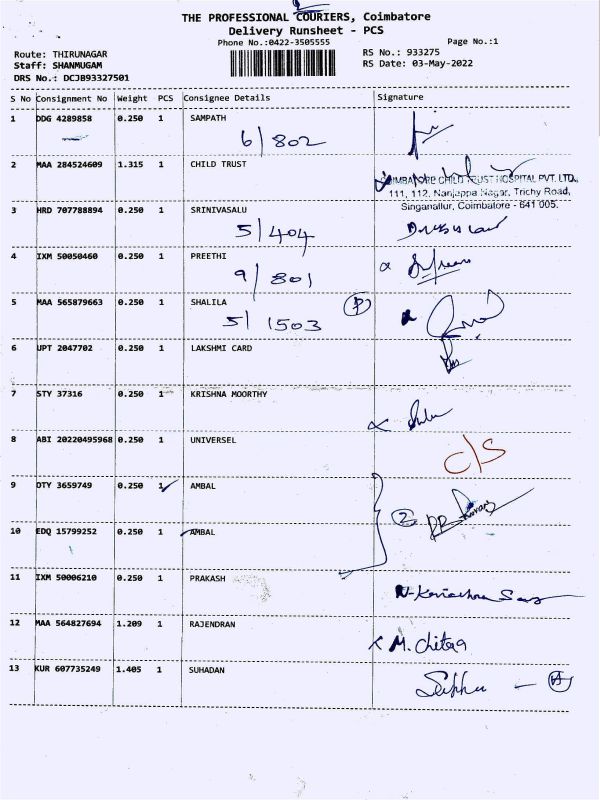 THE PROFESSIONAL COURIERS, Coimbatore
Delivery Runsheet - PCS
Phone No.:0422-3505555
Page No.:1
Route: THIRUNAGAR
RS No.: 933275
Staff: SHANMUGAM
RS Date: 03-May-2022
DRS No.: DCJB93327501
S No Consignment No Weight PCS Consignee Details Signature
1 DDG 4289858 0.250 1 SAMPATH
6/802
2 MAA 284524609 1.315 1 CHILD TRUST
COIMBATORE CHILD TRUST HOSPITAL PVT. LTD.,
111, 112, Nanjappa Nagar, Trichy Road,
Singanallur, Coimbatore - 641 005.
3 HRD 707788894 0.250 1 SRINIVASALU
5/404
4 IXM 50050460 0.250 1 PREETHI
9/801
5 MAA 565879663 0.250 1 SHALILA
5/1503
6 UPT 2047702 0.250 1 LAKSHMI CARD
7 STY 37316 0.250 1 KRISHNA MOORTHY
8 ABI 20220495968 0.250 1 UNIVERSEL
C/S
9 OTY 3659749 0.250 1 AMBAL
2
10 EDQ 15799252 0.250 1 AMBAL
11 IXM 50006210 0.250 1 PRAKASH
12 MAA 564827694 1.209 1 RAJENDRAN
M. Chitra
13 KUR 607735249 1.405 1 SUHADAN